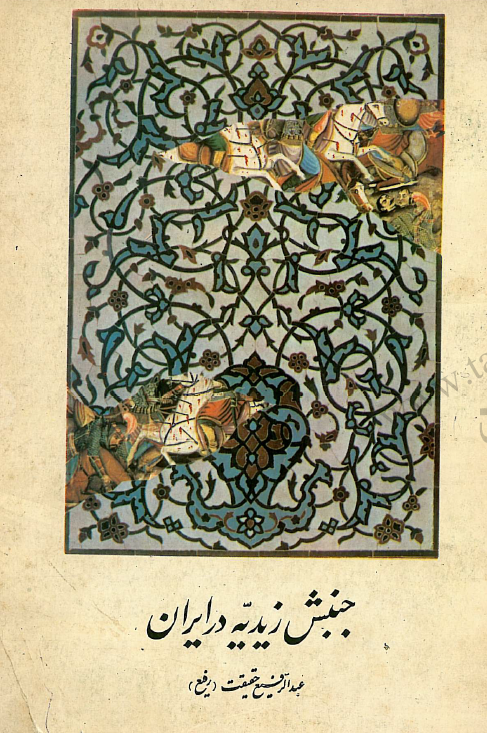 جنبش زیدیّه در ایران
عبدالرفیع حقیقت (رفیع)